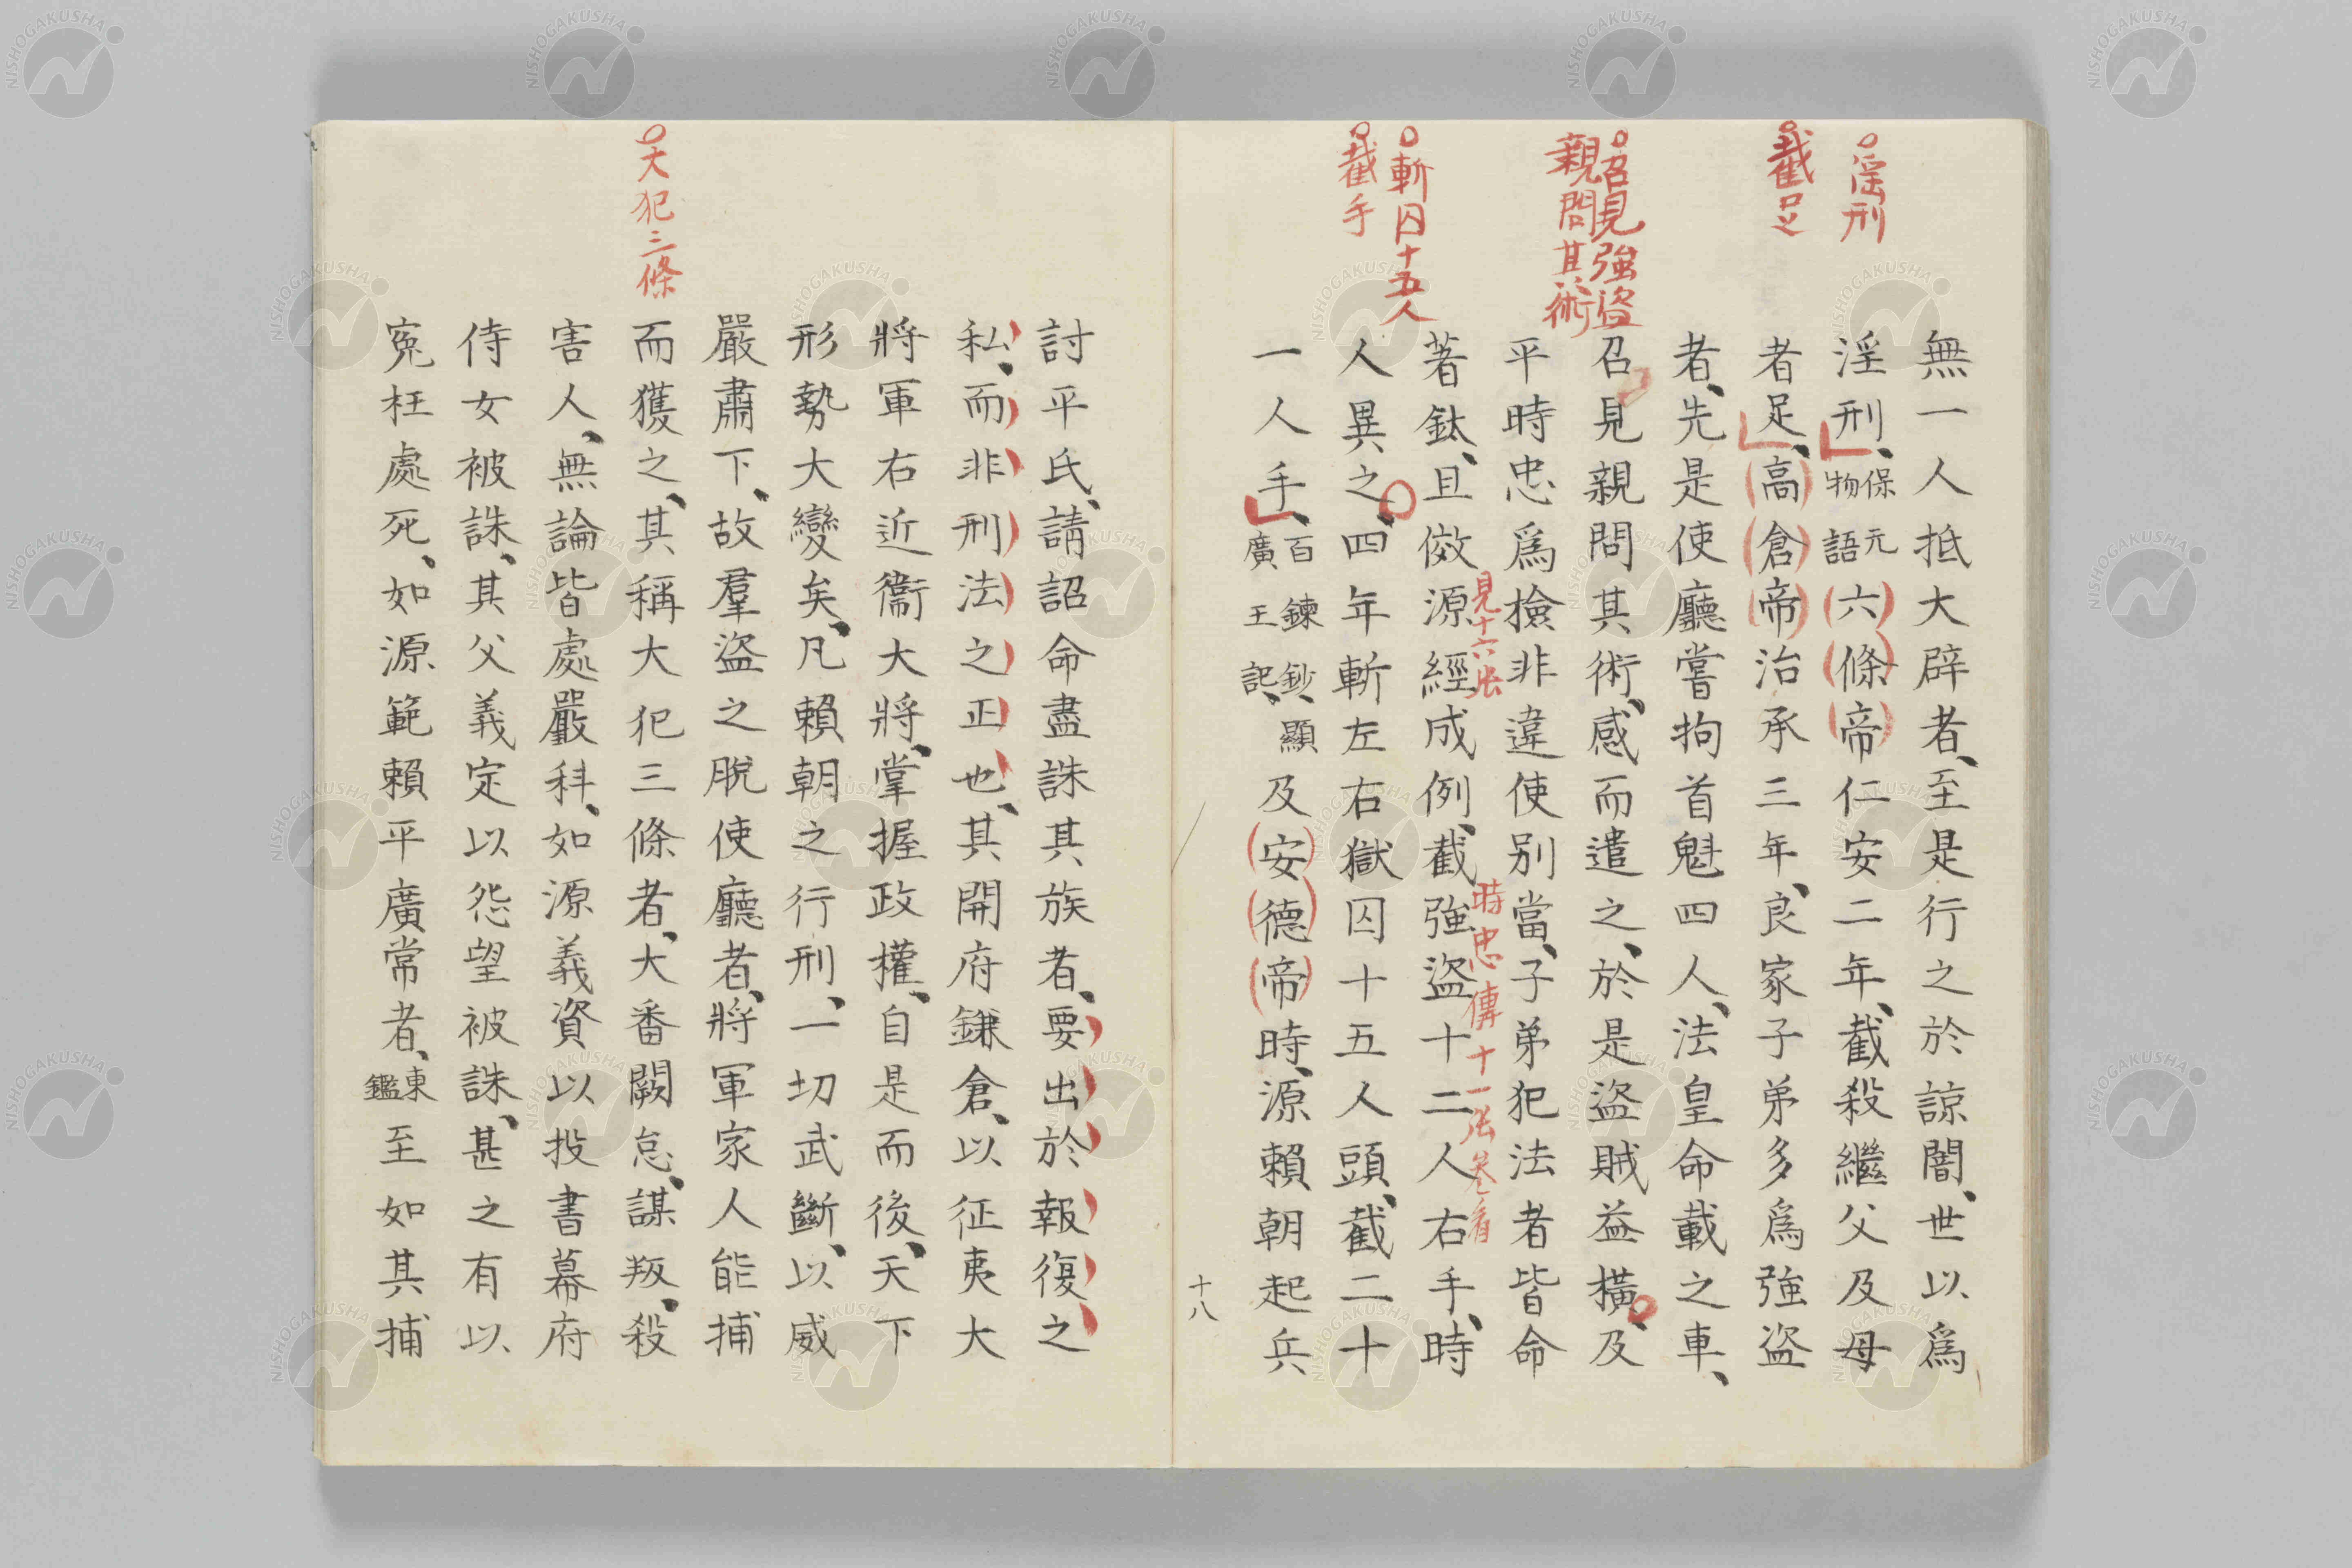 ○淫刑
○截足
○召見強盜
親問其術
○斬囚十五人
○截手
無一人抵大辟者、至是行之於諒闇、世以爲
淫刑、保元物語六條帝仁安二年、截殺繼父及母
者足、高倉帝治承三年、良家子弟多爲強盜
者、先是使廳嘗拘首魁四人、法皇命載之車、
召見親問其術、感而遣之、於是盜賊益橫、及
平時忠爲撿非違使別當、子弟犯法者皆命
見十六張
時忠傳十一張參看
著鈦、且傚源經成例、截強盜十二人右手、時
人異之、四年斬左右獄囚十五人頭、截二十
一人手、百鍊鈔、顯廣王記、及安德帝時、源賴朝起兵
十八
○大犯三條
討平氏、請詔命盡誅其族者、要出於報復之
私、而非刑法之正也、其開府鎌倉、以征夷大
將軍右近衞大將、掌握政權、自是而後、天下
形勢大變矣、凡賴朝之行刑、一切武斷、以威
嚴肅下、故羣盜之脫使廳者、將軍家人能捕
而獲之、其稱大犯三條者、大番闕怠、謀叛、殺
害人、無論皆處嚴科、如源義資以投書幕府
侍女被誅、其父義定以怨望被誅、甚之有以
冤枉處死、如源範賴平廣常者、東鑑至如其捕
NISHOGAKUSHA